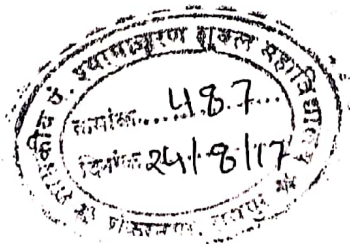 पं. श्यामाचरण शुक्ल महाविद्यालय
क्रमांक.....487...
दिनांक 24/8/17